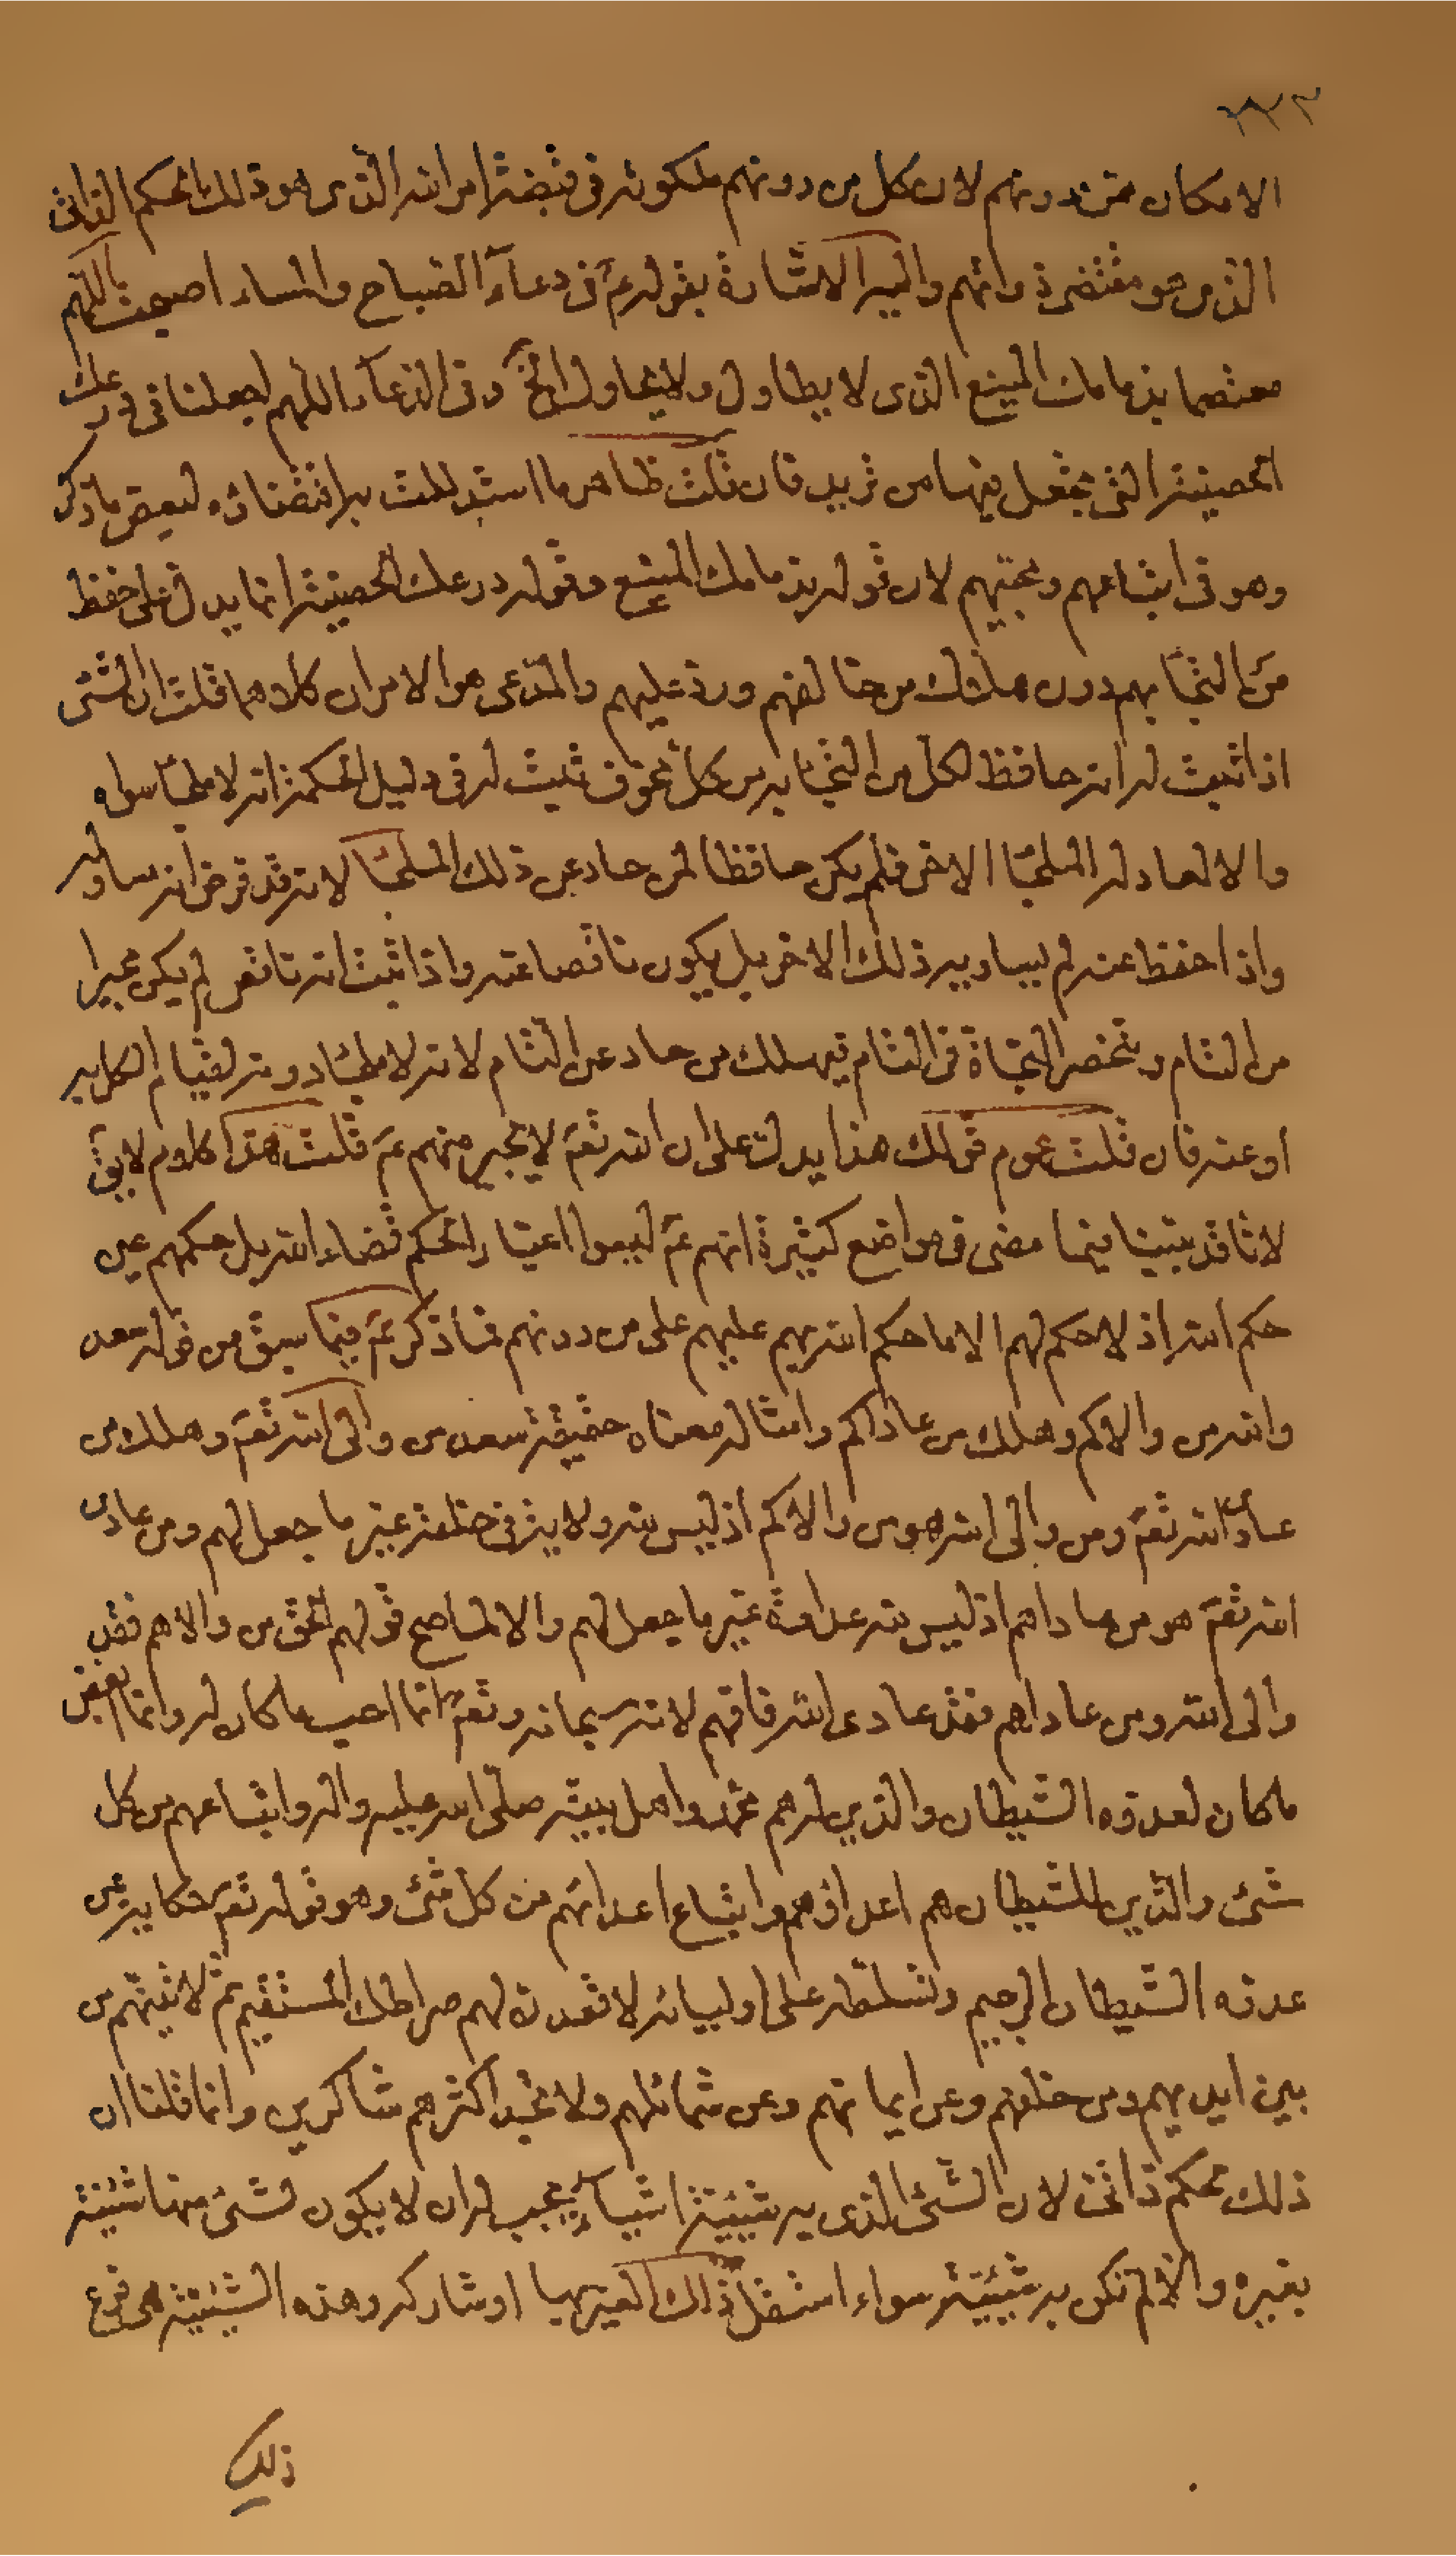 الامكان ممن دونهم لان كل من دونهم ملكوته فى قبضة امر الله الذى هو ذلك الحكم الذاتى
الذى هو مقتضى ذواتهم واليه الاشارة بقوله عۤ فى دعآء الصباح والمساء اصبحت اللهم
معتصما بذمامك المنيع الذى لا يطاول ولا يحاول الخ وفى الدعآء اللهم اجعلنا فى درعك
الحصينة التى تجعل فيها من تريد فان قلت ظاهر ما استدللت به اقتضاؤه لبعض ما ذكر
وهو فى اتباعهم ومحبيهم لان قوله بذمامك المنيع وقوله درعك الحصينة انما يدل على حفظ
من التجأ بهم دون هلاك من خالفهم ورد عليهم والمدعى هو الامران كلاهما قلت ان الشئ
اذا ثبت له انه حافظ لكل من التجأ به من كل مخوف ثبت له فى دليل الحكمة انه لا ملجأ سواه
والا لعادله الملجأ الاخر فلم يكن حافظا لمن حاد عن ذلك الملجأ لانه قد فرض انه ساوله
واذا حفظ عنه لم يساويه ذلك الاخر بل يكون ناقصا عنه واذا ثبت انه ناقص لم يكن مجيرا
من التام وتنحصر النجاة فى التام فيهلك من حاد عن التام لانه لا ملجأ دونه لقيام الكل به
او عنه فان قلت عموم قولك هذا يدل على ان الله تعۤ لا يجير منهم عۤ قلت هذا كلام لا يبق
لانا قد بينا فيما مضى فى مواضع كثيرة انهم عۤ ليسوا اغيارا لحكم قضاء الله بل حكمهم عين
حكم الله اذ لا حكم لهم الا ما حكم الله بهم عليهم على من دونهم فما ذكر عۤ فيما سبق من قوله سعد
والله من والاكم وهلك من عاداكم وامثاله معناه حقيقة سعد من والى الله تعۤ وهلك من
عادى الله تعۤ ومن والى الله هو من والاكم اذ ليس لله ولاية فى خلقه غير ما جعل لهم ومن عادى
الله تعۤ هو من عاداهم اذ ليس لله عداوة غير ما جعل لهم والا لما صح قولهم الحق من والاهم فقد
والى الله ومن عاداهم فقد عادى الله فافهم لانه سبحانه وتعۤ انما احب ما كان له وانما ابغض
ما كان لعدوه الشيطان والذين له هم محمد واهل بيته صلى الله عليه واله واتباعهم من كل
شئ والذين للشيطان هم اعداؤهم واتباع اعدائهم من كل شئ وهو قوله تعۤ حكاية عن
عدوه الشيطان الرجيم وتسلطه على اوليائه لاقعدن لهم صراطك المستقيم ثم لاتينهم من
بين ايديهم ومن خلفهم وعن ايمانهم وعن شمائلهم ولا تجد اكثرهم شاكرين وانما قلنا ان
ذلك حكم ذاتى لان الشئ الذى به شيئية اشيآء يجب له ان لا يكون لشئ منها شيئية
بغيره والا لم تكن به شيئية سواء استقل ذلك الغير بها او شاركه وهذه الشيئية هى فرع
ذلك